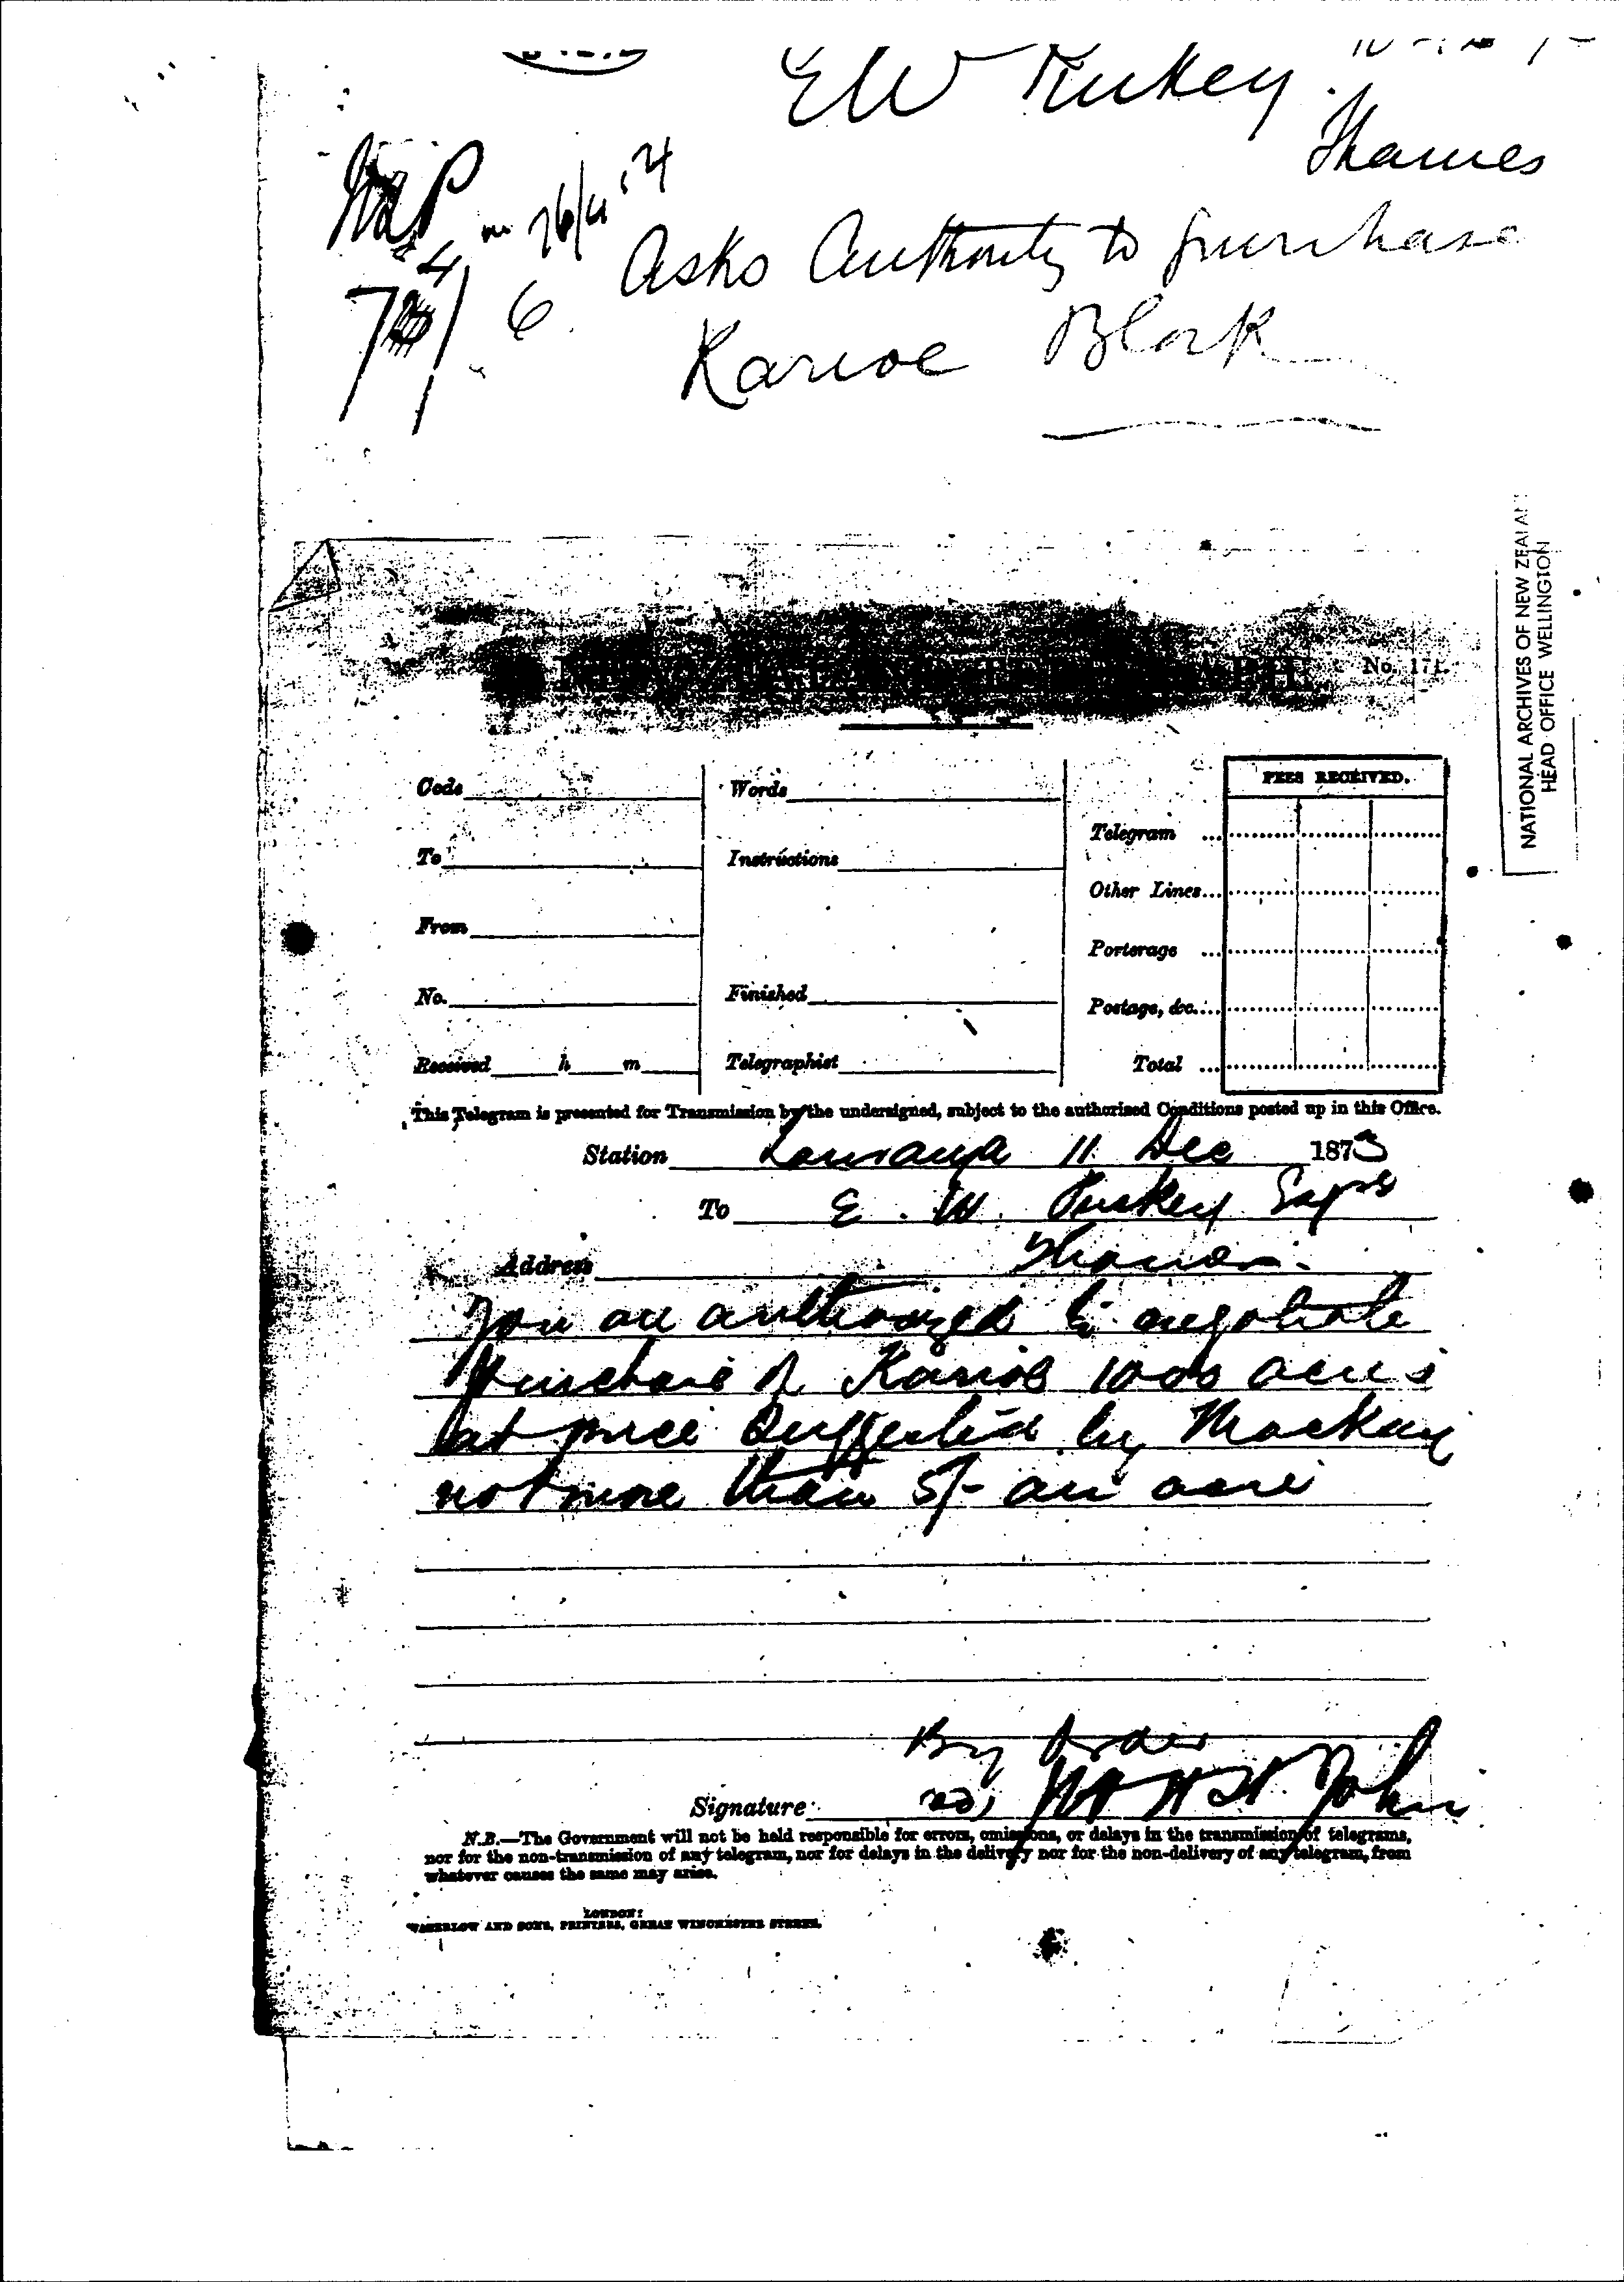 E W Puckey
Thames
Asks Authority to purchase
Karioe Block
NATIONAL ARCHIVES OF NEW ZEALAND
HEAD OFFICE WELLINGTON
No. 171.
FEES RECEIVED.
Code
Words
Telegram ...
To
Instructions
Other Lines...
From
Porterage ...
No.
Finished
Postage, &c....
Received h m
Telegraphist
Total ...
This Telegram is presented for Transmission by the undersigned, subject to the authorised Conditions posted up in this Office.
Station Tauranga 11 Dec 1873
To E. W. Puckey Esqre
Address Thames
You are authorized to negotiate
purchase of Karioe 1000 acres
at price suggested by Mackay
not more than 5/- an acre
By order
Signature H St John
N.B.—The Government will not be held responsible for errors, omissions, or delays in the transmission of telegrams,
nor for the non-transmission of any telegram, nor for delays in the delivery nor for the non-delivery of any telegram, from
whatever causes the same may arise.
LONDON:
WATERLOW AND SONS, PRINTERS, GREAT WINCHESTER STREET.